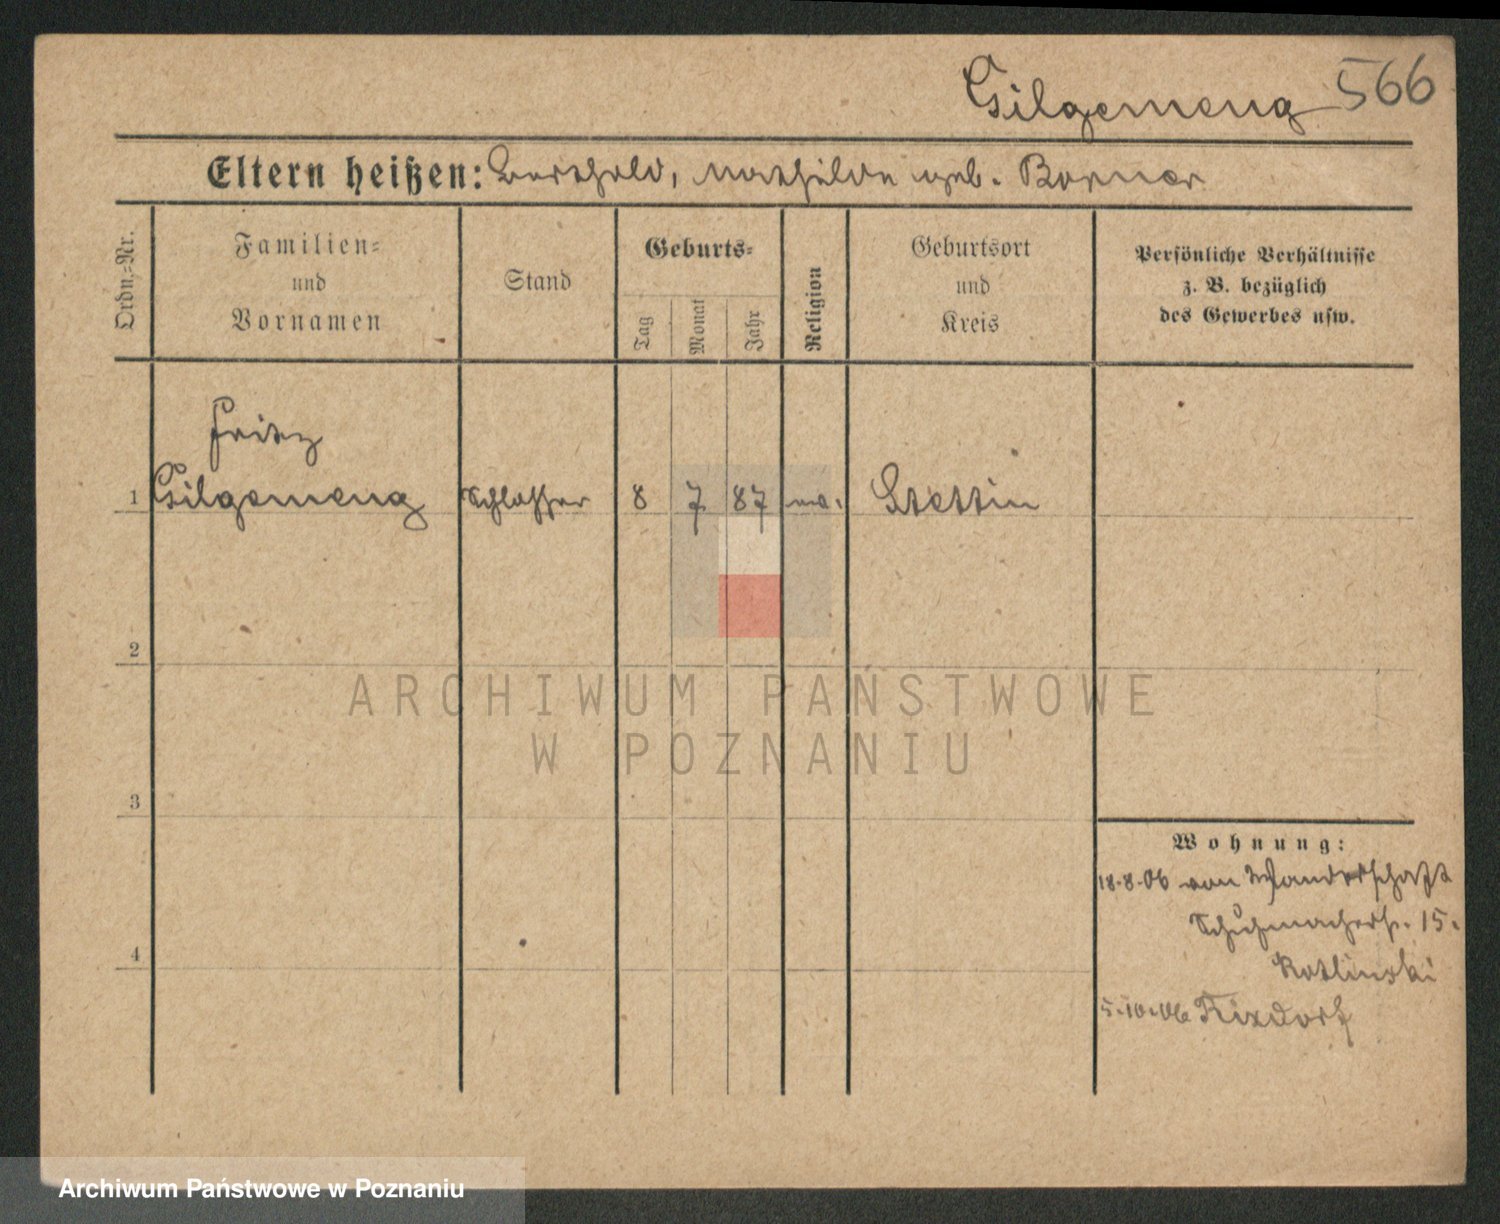 Gilgemeng 566
Eltern heißen: Berthold, Mathilde geb. Borner
Ordn.-Nr.
Familien-
und
Vornamen
Stand
Geburts-
Tag
Monat
Jahr
Religion
Geburtsort
und
Kreis
Persönliche Verhältnisse
z. B. bezüglich
des Gewerbes usw.
Fritz
1 Gilgemeng Schlosser 8 7 87 ev. Stettin
2
3
4
Wohnung:
18.8.06 von Wanderschaft
Schuhmacherstr. 15.
Kotlinski
5.10.06 Rixdorf
ARCHIWUM PAŃSTWOWE
W POZNANIU
Archiwum Państwowe w Poznaniu